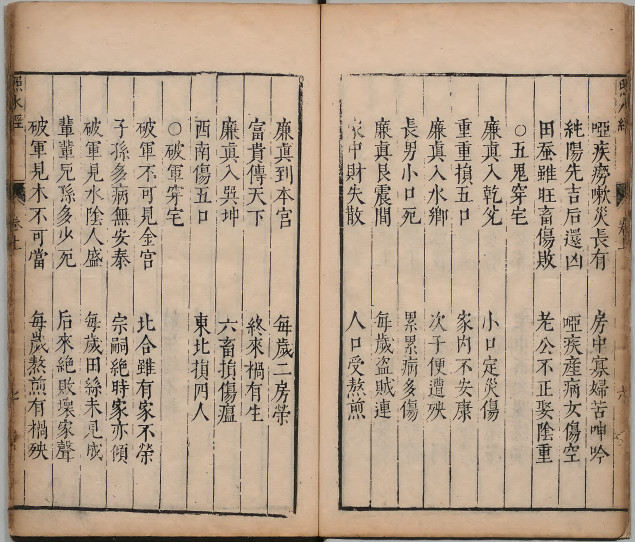 啞疾癆嗽災長有　房中寡婦苦呻吟
純陽先吉后還凶　啞疾產病女傷空
田蚕雖旺畜傷敗　老公不正娶陰重
○五鬼穿宅
廉真入乾兊　小口定災傷
重重損五口　家内不安康
廉真入水鄉　次子便遭殃
長男小口死　累累病多傷
廉真艮震間　每歲盜賊連
中財失散　人口受熬煎
廉真到本宫　每歲二房荣
富貴傳天下　終來禍有生
廉真入巽坤　六畜損傷瘟
西南傷五口　東北損四人
○破軍穿宅
破軍不可見金宫　北合雖有家不荣
子孫多病無安泰　宗嗣絶時家亦傾
破軍見水陰人盛　每歲田絲未見成
輩輩兒孫多少死　后來絶敗壞家聲
破軍見木不可當　每歲熬煎有禍殃
照水經
卷上